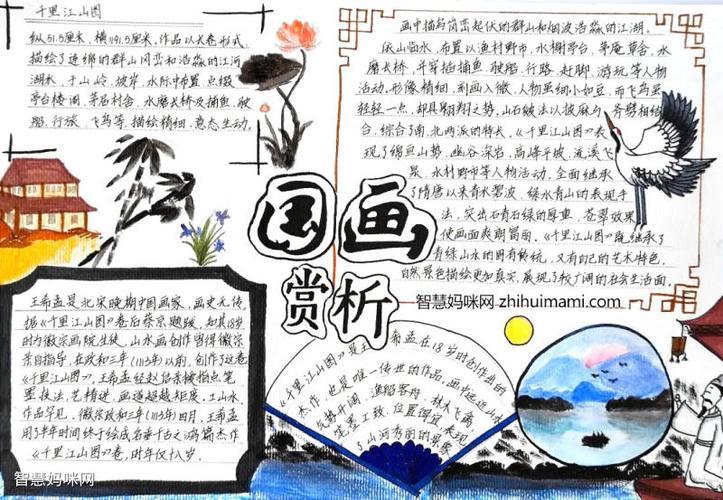 千里江山图
纵51.5厘米，横1191.5厘米，作品以长卷形式，
描绘了连绵的群山冈峦和浩淼的江河
湖水，于山岭、坡岸、水际中布置、点缀
亭台楼阁、茅居村舍，水磨长桥及捕鱼、驶
船、行旅、飞鸟等，描绘精细，意态生动。
画中描写岗峦起伏的群山和烟波浩淼的江湖。
依山临水，布置以渔村野市，水榭亭台，茅庵草舍，水
磨长桥，并穿插捕鱼、驶船、行路、赶脚、游玩等人物
活动。形像精细，刻画入微，人物虽细小如豆，而飞鸟虽
轻轻一点，却具翱翔之势。山石皴法以披麻与
斧劈相结
合，综合了南、北两派的特长，《千里江山图》表
现了绵亘山势，幽谷深岩，高峰平坡，流溪飞
泉，水村野市等人物活动，全面继承
了隋唐以来青水碧波，绿水青山的表现手
法，突出石青石绿的厚重、苍翠效果
使画面爽朗富丽。《千里江山图》既继承了
青绿山水的固有传统，又有自己的艺术特色，
自然景色描绘更加真实，展现了较广阔的社会生活面。
国画
赏析
智慧妈咪网 zhihuimami.com
王希孟是北宋晚期中国画家，画史无传，
据《千里江山图》卷后蔡京题跋，知其18岁
时为徽宗画院生徒，山水画创作曾得徽宗
亲自指导，在政和三年(1113年)以前，创作了这卷
《千里江山图》，王希孟经赵佶亲授指点笔
墨技法，艺精进，画遂超越矩度，王山水
作品罕见，徽宗政和三年(1113年)四月，王希孟
用了半年时间终于绘成名垂千古之鸿篇杰作
《千里江山图》卷，时年仅十八岁。
《千里江山图》是王希孟在18岁时创作出的
杰作，也是唯一传世的作品，画中远近山水
气势开阔，渔船客舟，林木飞禽
笔墨工致，位置得宜，表现
了山河秀丽的景象
智慧妈咪网